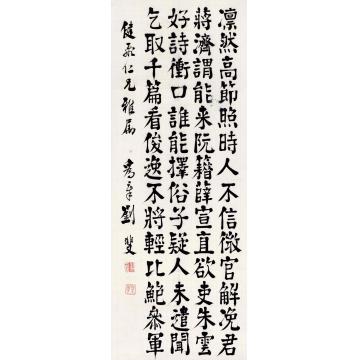 凛然高節照時人不信微官解浼君
蔣濟謂能來阮籍薛宣直欲吏朱雲
好詩衝口誰能擇俗子疑人未遣聞
乞取千篇看俊逸不將輕比鮑參軍
健飛仁兄雅屬
劉斐